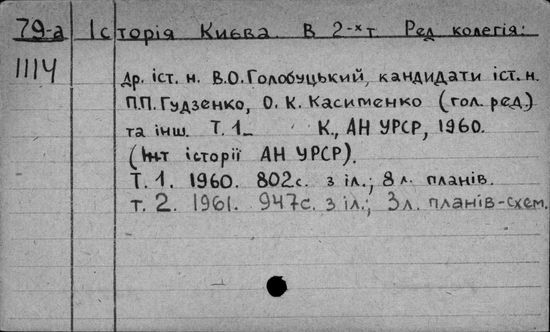 79-а Історія Києва. В 2-х т. Ред. колегія:
1114
др. іст. н. В.О. Голобуцький, кандидати іст. н.
П.П. Гудзенко, О. К. Касименко (гол. ред.)
та інш. Т. 1– К., АН УРСР, 1960.
(Інт історії АН УРСР).
Т. 1. 1960. 802с. з іл.; 8 л. планів.
т. 2. 1961. 947с. з іл.; 3л. планів-схем.